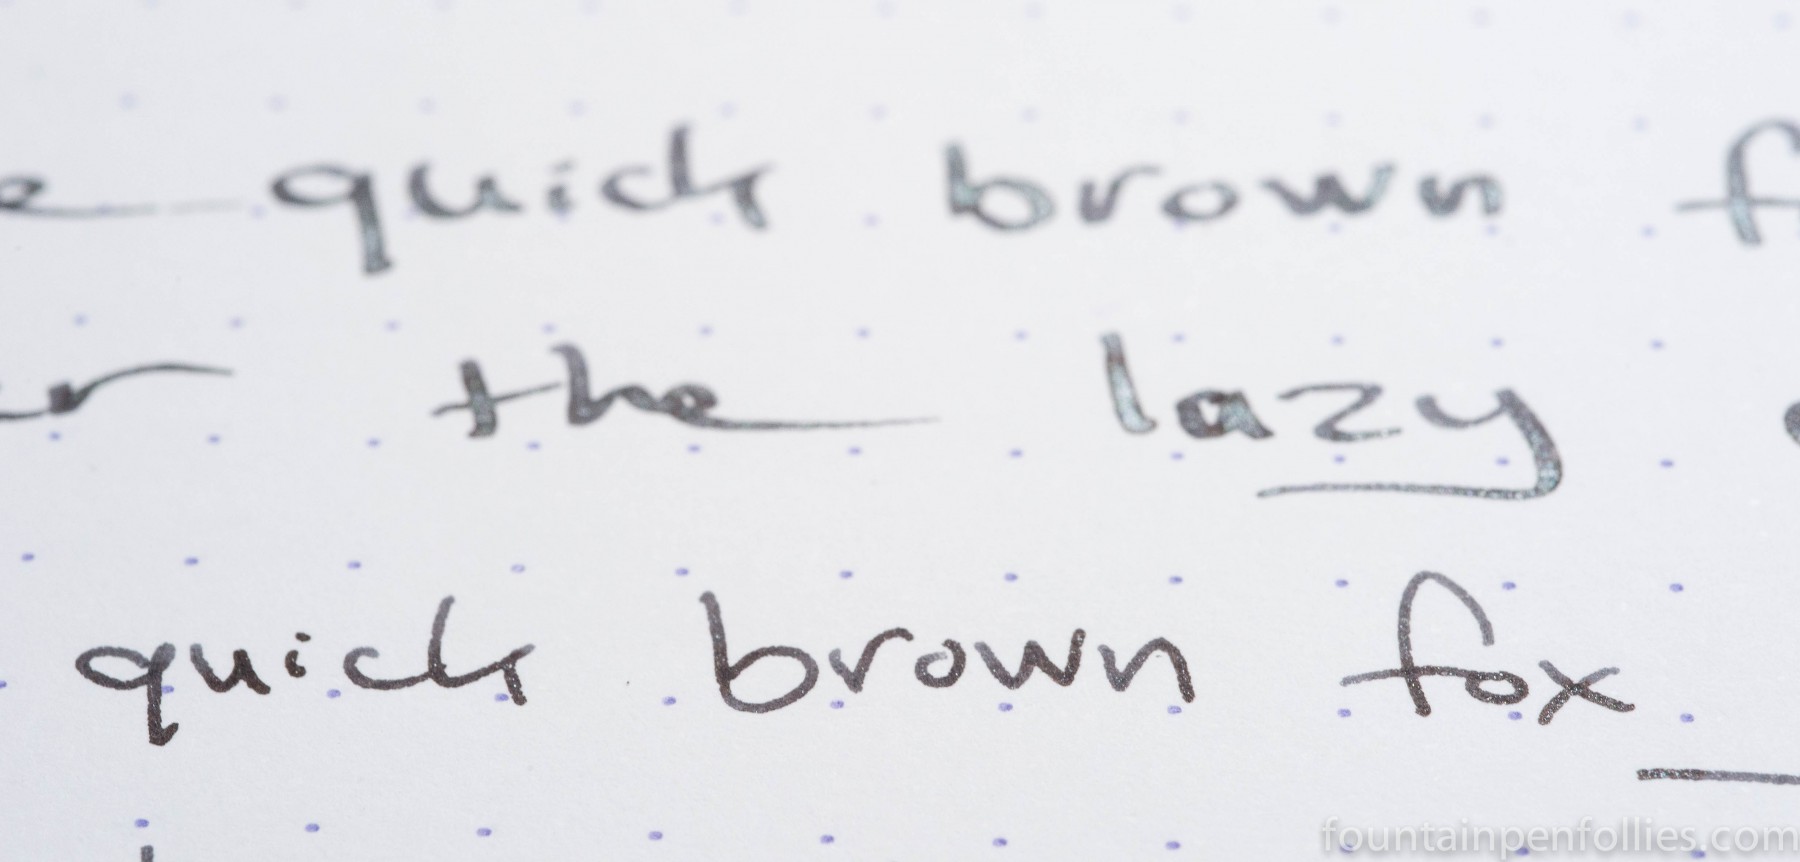 e quick brown f
er the lazy
quick brown fox
fountainpenfollies.com